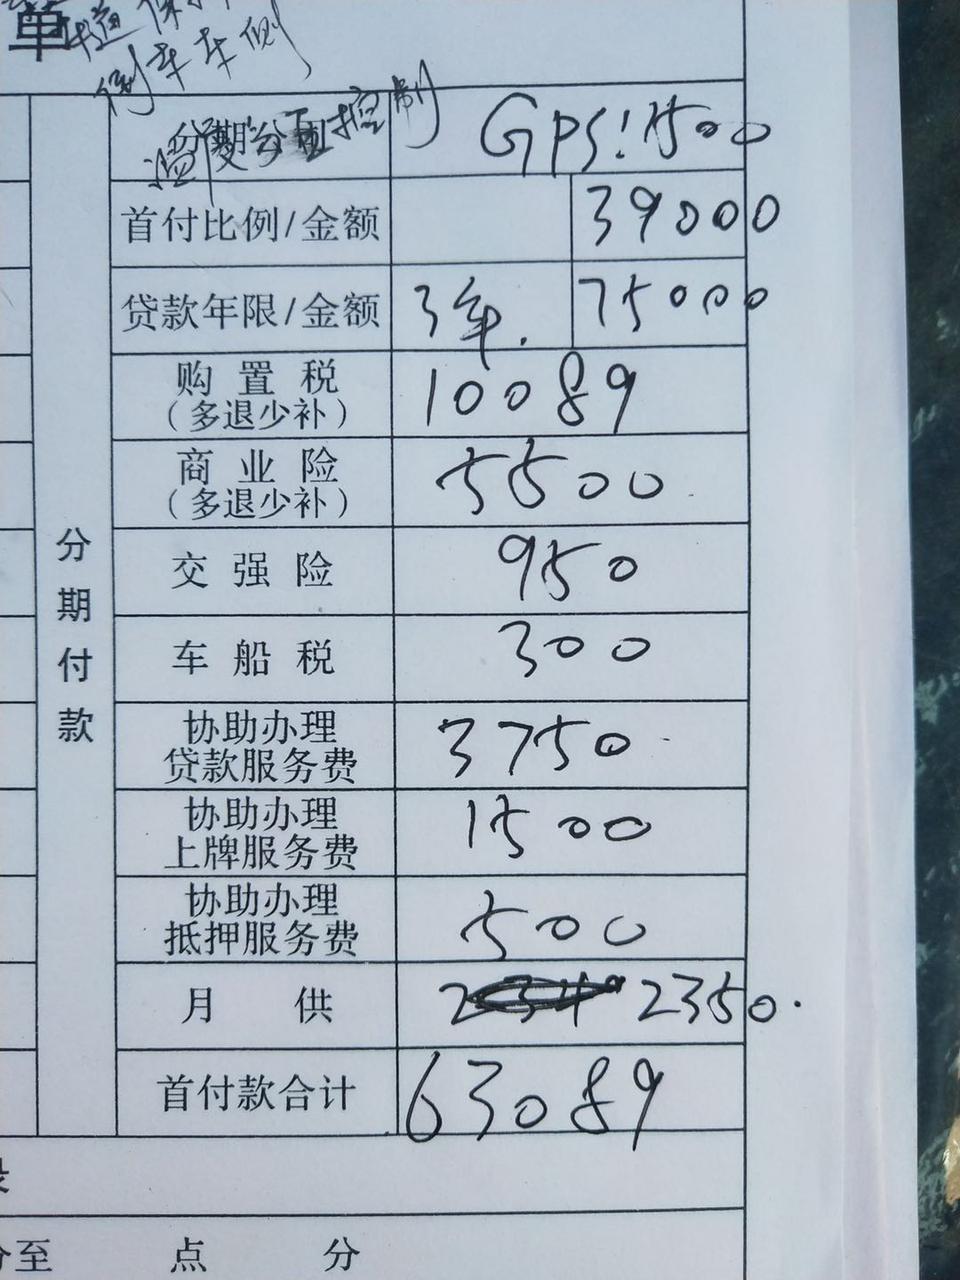 单
倒车车侧
温度分区控制
分期 GPS:1500
首付比例/金额 39000
贷款年限/金额 3年. 75000
购置税 10089
(多退少补)
商业险 5500
(多退少补)
交强险 950
车船税 300
协助办理
贷款服务费 3750
协助办理
上牌服务费 1500
协助办理
抵押服务费 500
月供 2350.
首付款合计 63089
分期付款
至 点 分